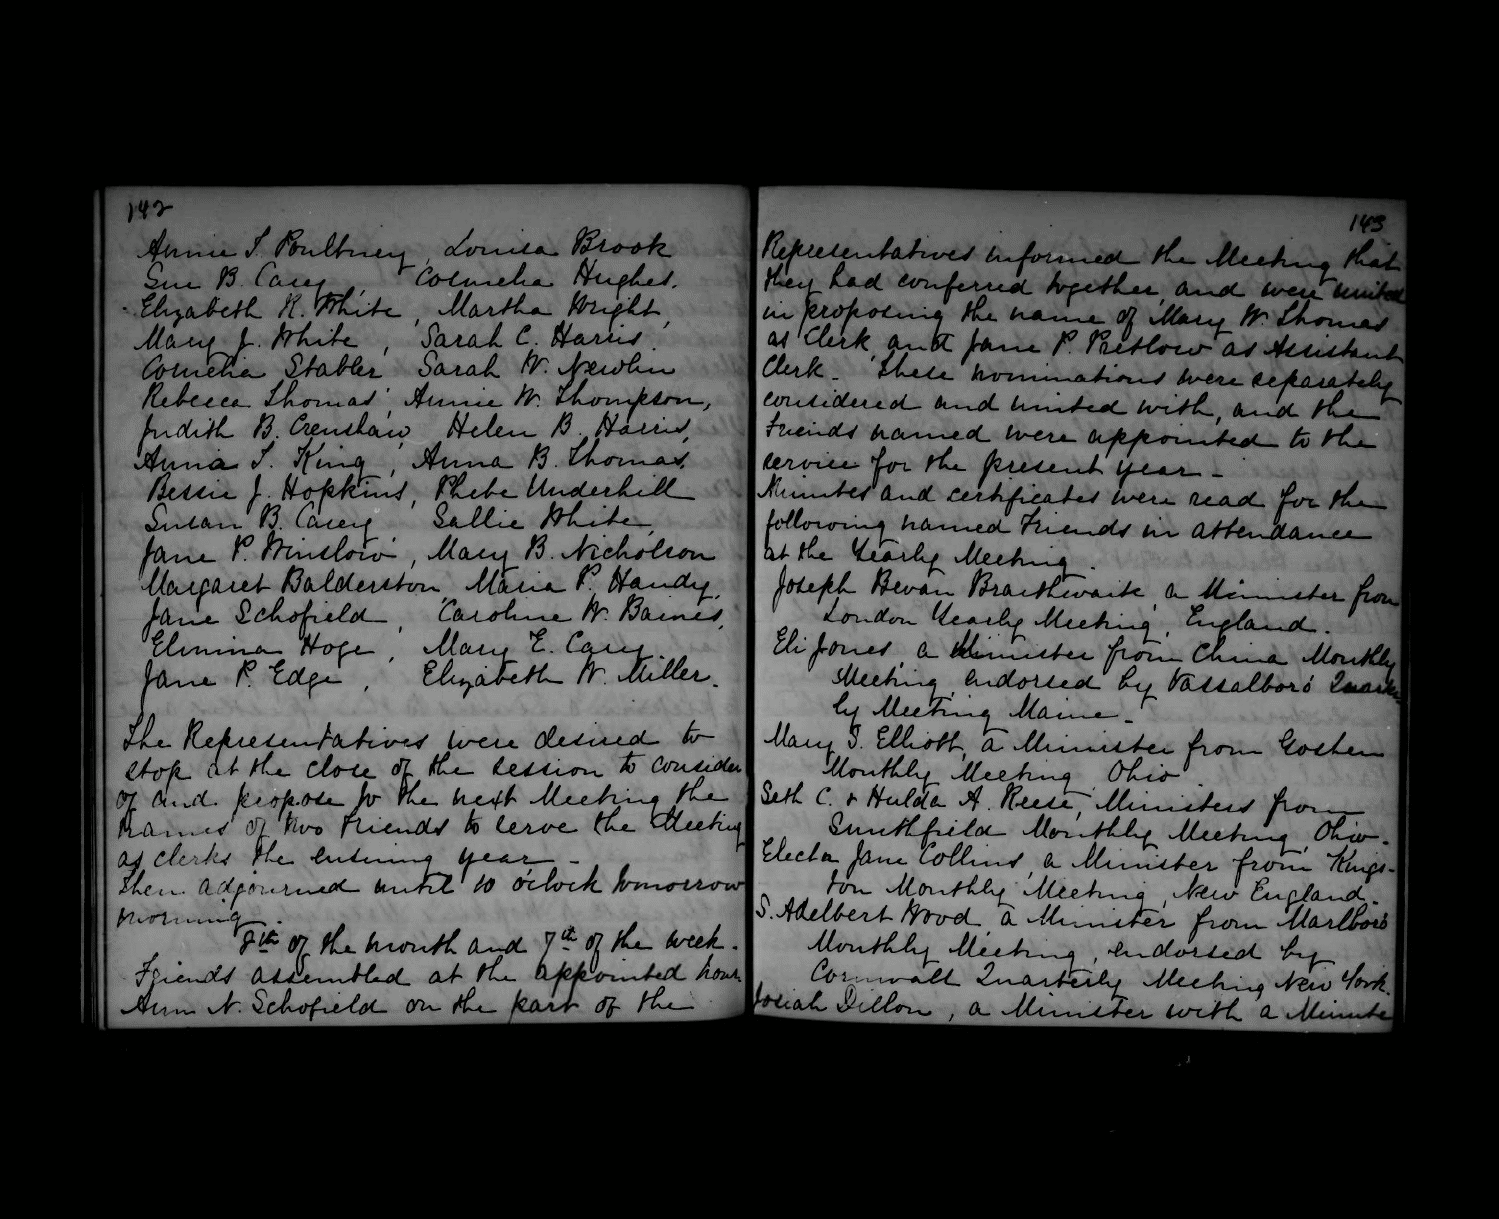 142
Annie S. Poultney, Louisa Brook
Sue B. Carey, Cornelia Hughes.
Elizabeth R. White, Martha Wright,
Mary J. White, Sarah C. Harris.
Cornelia Stabler Sarah W. Newlin
Rebecca Thomas, Annie W. Thompson,
Judith B. Crenshaw, Helen B. Harris,
Anna S. King, Anna B. Thomas,
Bessie J. Hopkins, Phebe Underhill
Susan B. Carey Sallie White,
Jane P. Winslow, Mary B. Nicholson
Margaret Balderston, Maria P. Handy,
Jane Schofield, Caroline W. Barnes,
Elmina Hoge, Mary E. Cary.
Jane P. Edge, Elizabeth W. Miller.
The Representatives were desired to
stop at the close of the session to consider
of and propose to the next Meeting the
names of two Friends to serve the Meeting
as clerks the ensuing year -
Then adjourned until 10 o'clock tomorrow
morning.
8th of the month and 7th of the week.
Friends assembled at the appointed hour
Ann N. Schofield on the part of the
143
Representatives informed the Meeting that
they had conferred together, and were united
in proposing the name of Mary W. Thomas
as Clerk, and Jane P. Pretlow as Assistant
Clerk. These nominations were separately
considered and united with, and the
Friends named were appointed to the
service for the present year -
Minutes and certificates were read for the
following named Friends in attendance
at the Yearly Meeting.
Joseph Bevan Braithwaite, a Minister from
London Yearly Meeting, England.
Eli Jones, a Minister from China Monthly
Meeting, endorsed by Vassalboro' Quarter
ly Meeting Maine.
Mary S. Elliott, a Minister from Goshen
Monthly Meeting, Ohio
Seth C. & Hulda A. Reese, Ministers from
Smithfield Monthly Meeting, Ohio.
Electa Jane Collins, a Minister from Kings-
ton Monthly Meeting, New England.
S. Adelbert Wood, a Minister from Marlboro
Monthly Meeting, endorsed by
Cornwall Quarterly Meeting New York.
Josiah Dillon, a Minister with a Minute